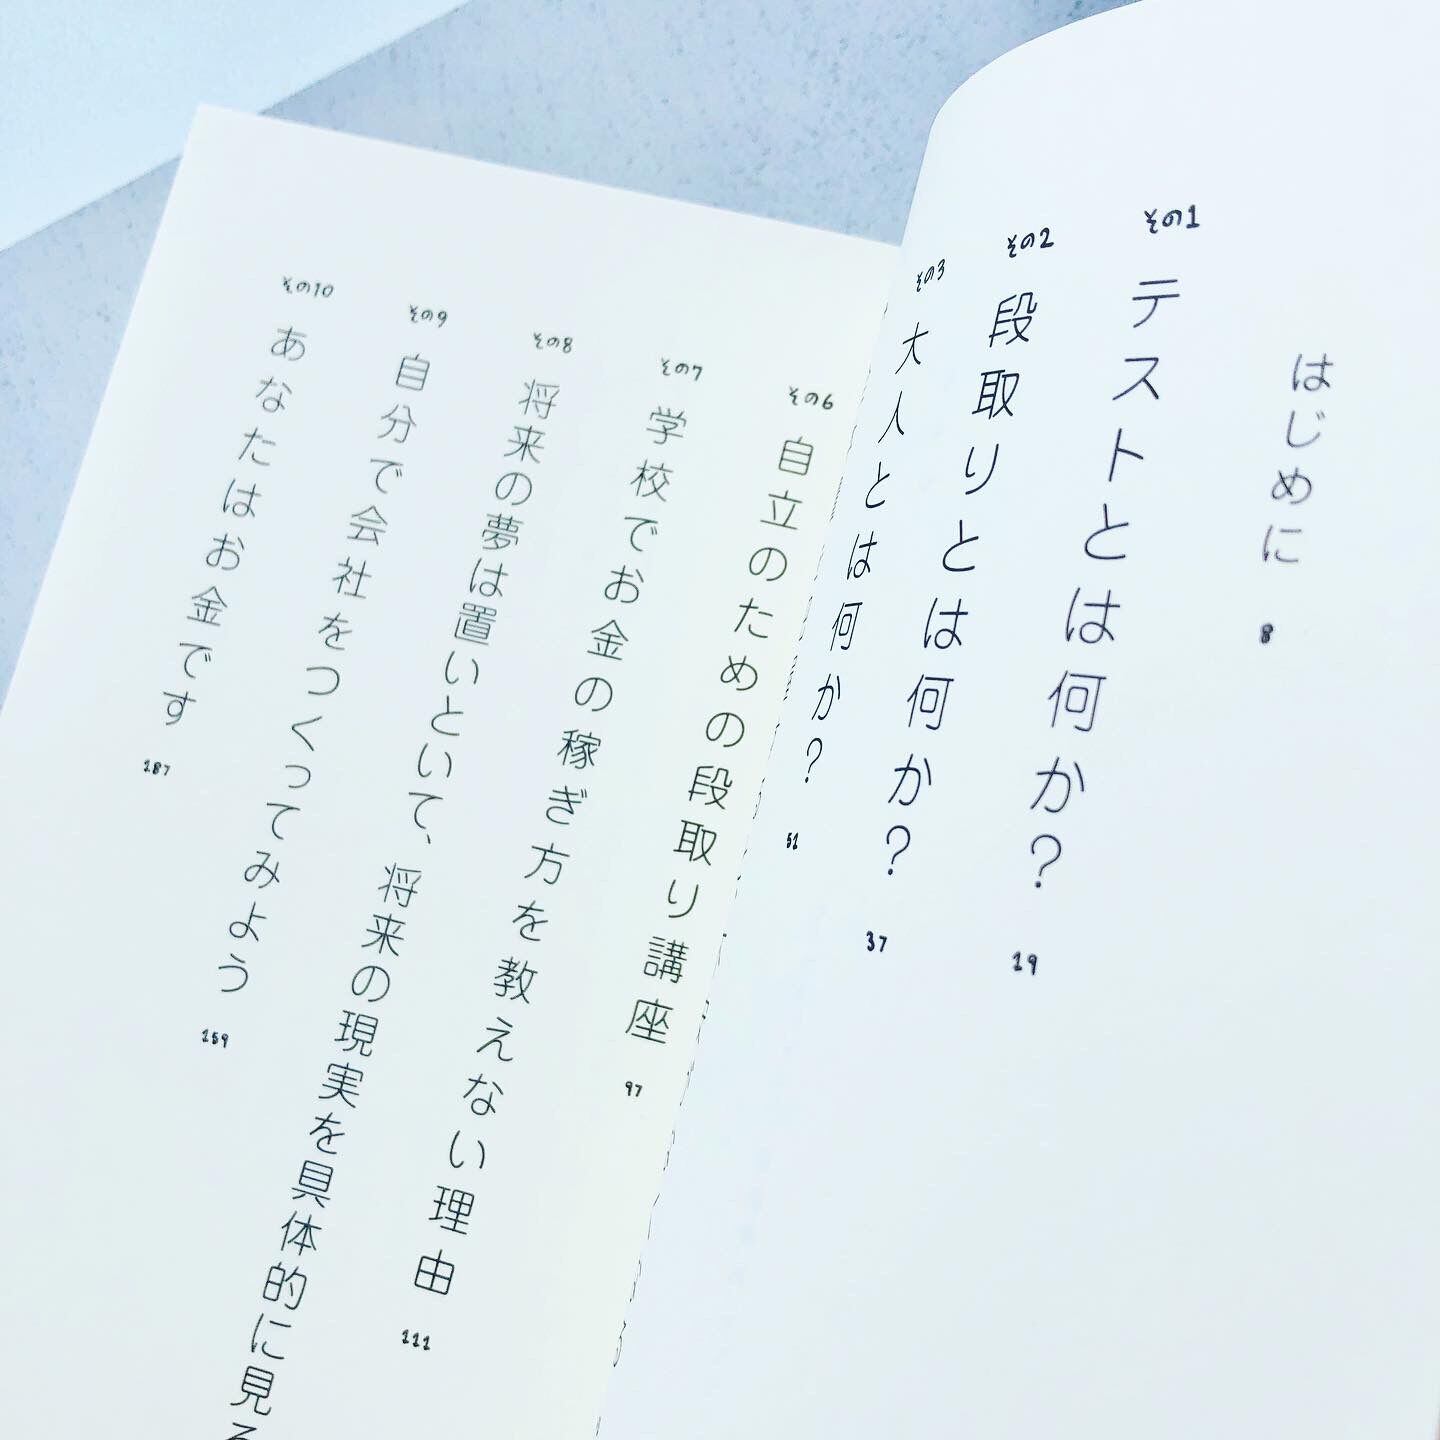 はじめに 8
その1 テストとは何か? 19
その2 段取りとは何か? 37
その3 大人とは何か? 51
その6 自立のための段取り講座 97
その7 学校でお金の稼ぎ方を教えない理由 111
その8 将来の夢は置いといて、将来の現実を具体的に見る
その9 自分で会社をつくってみよう 159
その10 あなたはお金です 187